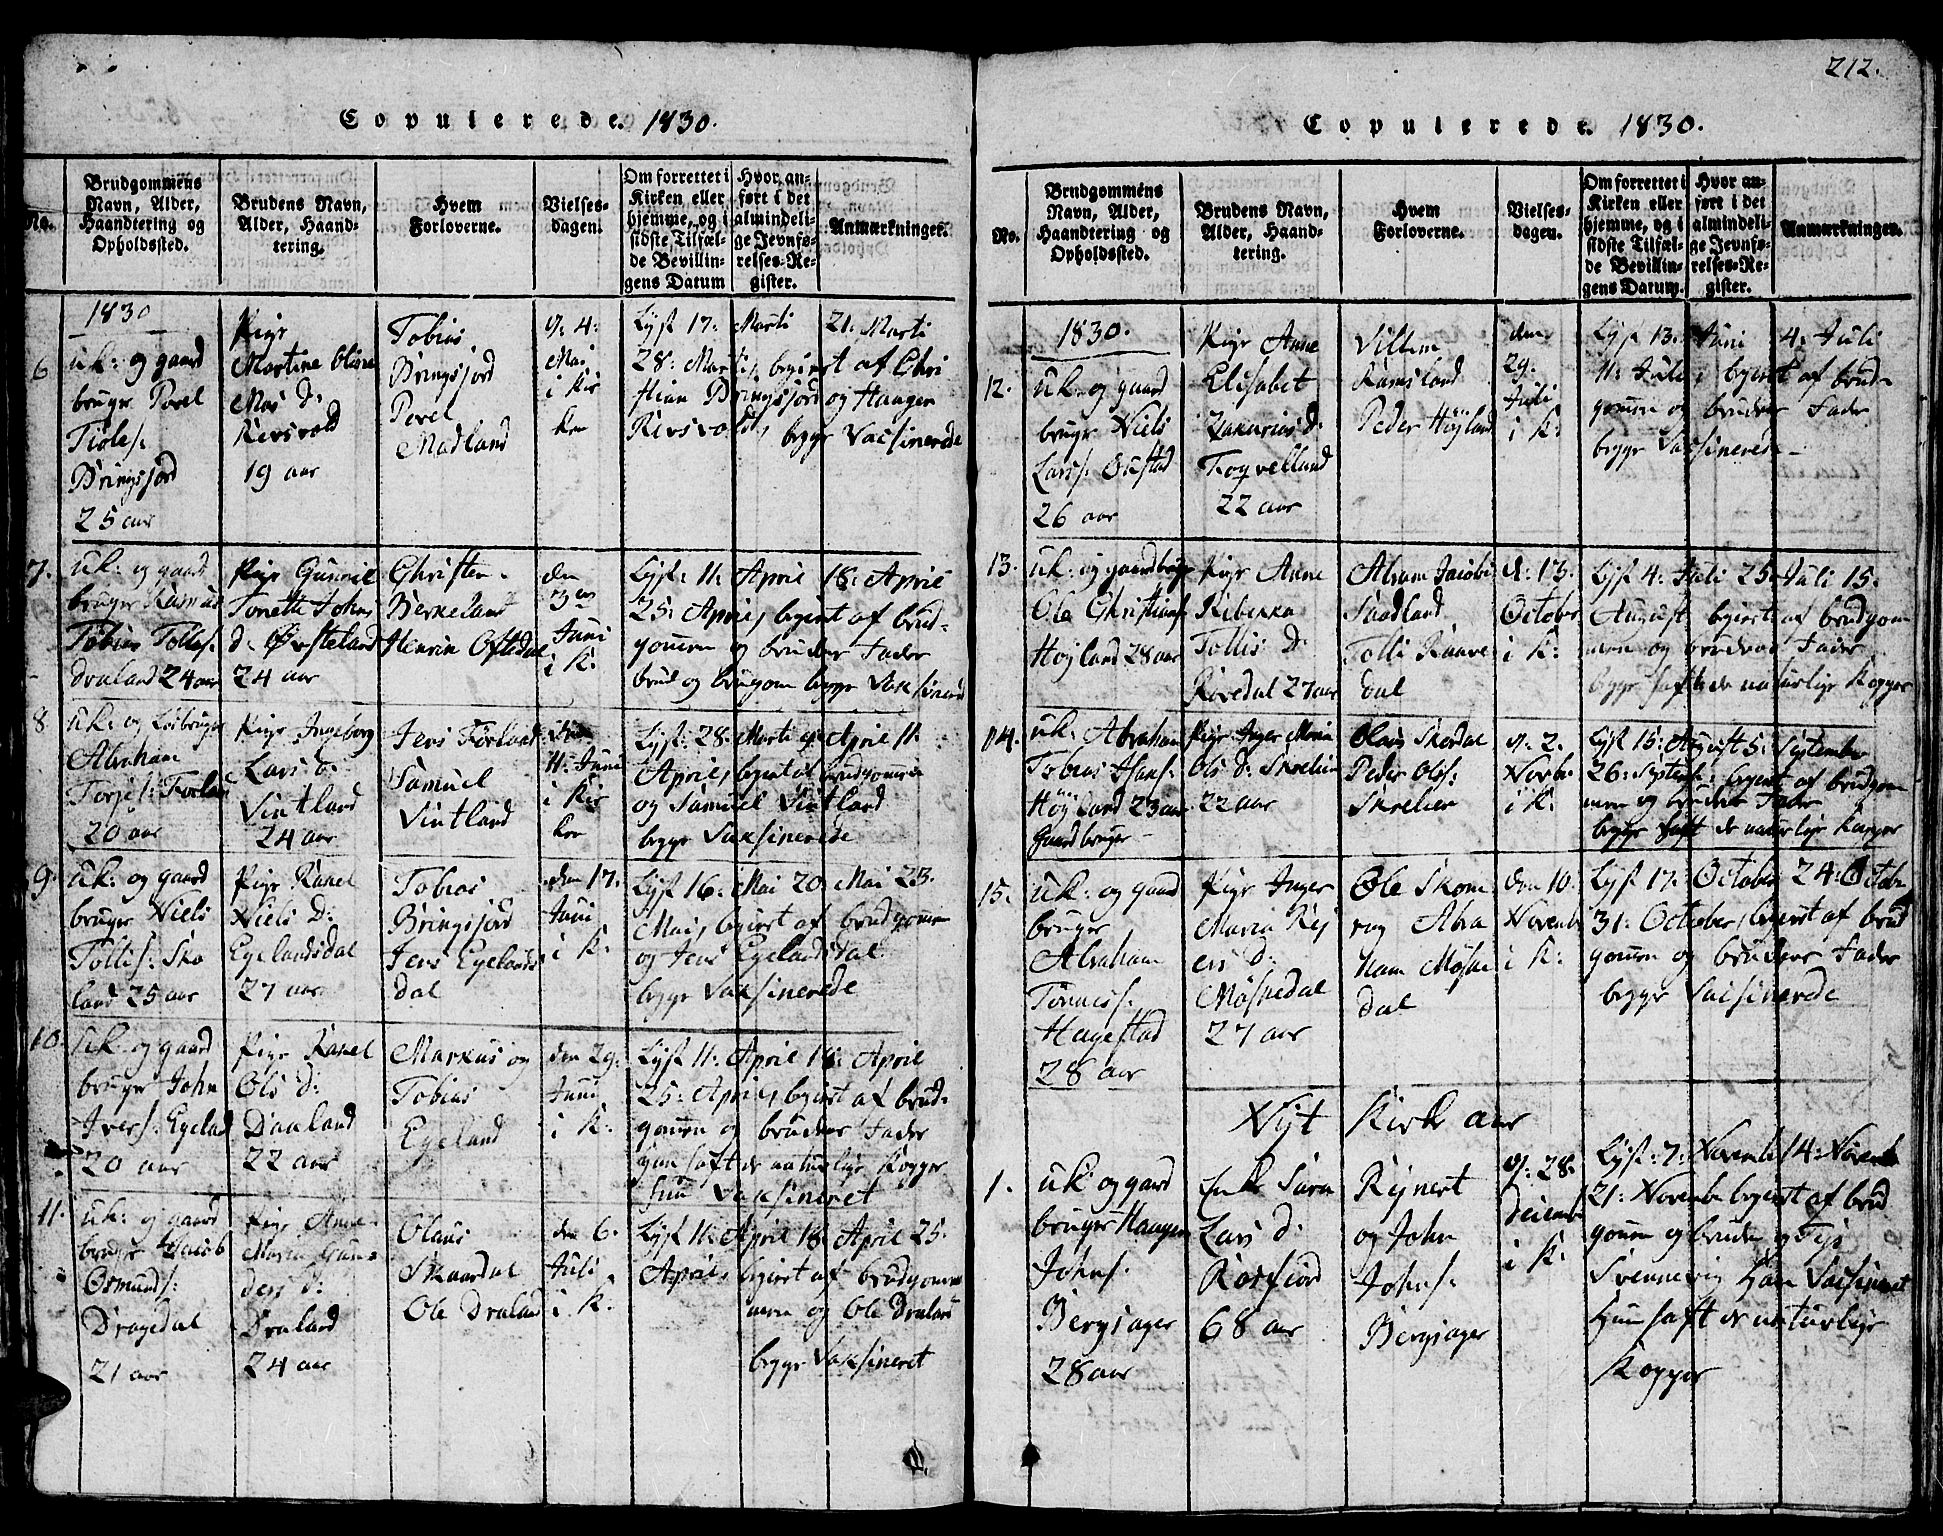 Copulerede. 1830.
No.
Brudgommens
Navn, Alder,
Haandtering og
Opholdssted.
Brudens Navn,
Alder, Haand-
tering.
Hvem
Forloverne.
Vielses-
dagen.
Om forrettet i
Kirken eller
hjemme, og i
sidste Tilfæl-
de Bevillin-
gens Datum
Hvor an-
ført i det
almindeli-
ge Jevnfø-
relses-Re-
gister.
Anmærkninger.
1830
6
uk: og gaard
bruger Povel
Tioles:
Bringsjord
25 aar
Pige
Martine Olene
Mos D:
Kirsvold
19 aar
Tobias
Bringsjord
Povel
Madland
d: 4:
Mai
i Kir
ken
Lyst 17: Marti 21: Marti
28: Marti, begiert af Chri
stian Bringsjord og Haagen
Kirsvold, begge Vacsinerede
7.
uk: og gaard
bruger Rasmus
Tobias Tolles:
Draland 24 aar
Pige Gunnil
Tonette Johns
d: Øvsteland
24 aar
Christen
Birkeland
Henrik Oftedal
den
3en
Juni
i K:
Lyst: 11: April 18: April
25: April, begiert af brud-
gomen og brudens Fader
brud og brugom begge Vaksinered
8
uk: og Løsbruger
Abraham
Torjes: Forland
20 aar
Pige Ingeborg
Lars D:
Vintland
24 aar
Jens Forland
Samuel
Vintland
den
11: Juni
i Kir
ken
Lyst: 28: Marti og April 11:
April, begiert af brudgomen
og Samuel Vintland
begge Vaksinerede
9.
uk: og gaard
bruger Niels
Tollis: Sko
land 25 aar
Pige Kanel
Niels D:
Egelandsdal
27 aar
Tobias
Bringsjord
Jens Egelands
dal
den 17:
Juni
i K:
Lyst 16: Mai 20 Mai 23.
Mai, begiert af brudgomen
og Jens Egelandsdal
begge Vaksinerede
10.
uk: og gaard
bruger John
Ivers: Egelad
20 aar
Pige Kanel
Ols D:
Daaland
22 aar
Markus og
Tobias
Egeland
den 29:
Juni
i K:
Lyst 11: April 18: April
25: April, begiert af brud-
gomen og brudens Fader
han haft de naturlige Kopper
hun Vaksineret
11.
uk: og gaard
bruger Jacob
Osmunds:
Dragedal
21 aar
Pige Anne
Maria Gun
ders d:
Draland
24 aar
Olaus
Skaardal
Ole Draland
den 6:
Juli
i K:
Lyst 11: April 18 April 25.
April, begiert af brudgomme
men og Ole Draland
begge Vaksineret
212.
Copulerede. 1830.
No.
Brudgommens
Navn, Alder,
Haandtering og
Opholdssted.
Brudens Navn,
Alder, Haand-
tering.
Hvem
Forloverne.
Vielses-
dagen.
Om forrettet i
Kirken eller
hjemme, og i
sidste Tilfæl-
de Bevillin-
gens Datum.
Hvor an-
ført i det
almindeli-
ge Jevnfø-
relses-Re-
gister.
Anmærkninger.
1830.
12.
uk: og gaard
bruger Niels
Lars: Oustad
26 aar
Pige Anne
Elisabet
Zakarias d:
Fogvelland
22 aar
Villem
Ramsland
Peder Höjland
den
29.
Juli
i K:
Lyst 13: Juni 4: Juli
11: Juli, begiert af brud-
gomen og brudens Fader
begge Vaksinerede
13.
uk: og gaardbruger
Ole Christians
Højland 28 aar
Pige Anne
Ribekka
Tollis D:
Røvedal 27 aar
Abram Jacobs
Saadland
Tolli Raave
dal
d: 13:
October
i K:
Lyst 4: Juli 25: Juli 15:
August begiert af brudgom
men og brudens Fader
begge haft de naturlige Kopper
14.
uk: Abraham
Tobias Hans:
Höjland 23 aar
Gaardbruger
Pige Inger Maria
Ols d: Skrelien
22 aar
Olaus Skerdal
Peder Ols:
Skrelien
d: 2.
Novbr
i K:
Lyst 15: August 5: September
26: Septem: begiert af brudgom
men og brudens Fader
begge haft de naturlige Kopper
15.
uk: og gaard
bruger
Abraham
Tønnes:
Hagestad
28 aar
Pige Inger
Maria Rej
ers D:
Møskedal
27 aar
Ole Skom
rag Abra
ham Møske
dal
den 10.
Novembr
i K:
Lyst 17: October 24: Octobr
31: October, begiert af brud
gomen og brudens Fader
begge Vacsinerede
Nyt Kirke aar
1.
uk: og gaard
bruger Haagen
Johns:
Bergsager
28 aar
Enke Sara
Lars d:
Rosfiord
68 aar
Rejnert
og John
Johns:
Bergsager
d: 28:
Deiembr
i K:
Lyst: 7: Novembr 14: Novemb
21: Novembr begiert af brud
gomen og bruden og Tys
Svennevig Han Vacsineret
Hun haft de naturlige
Kopper